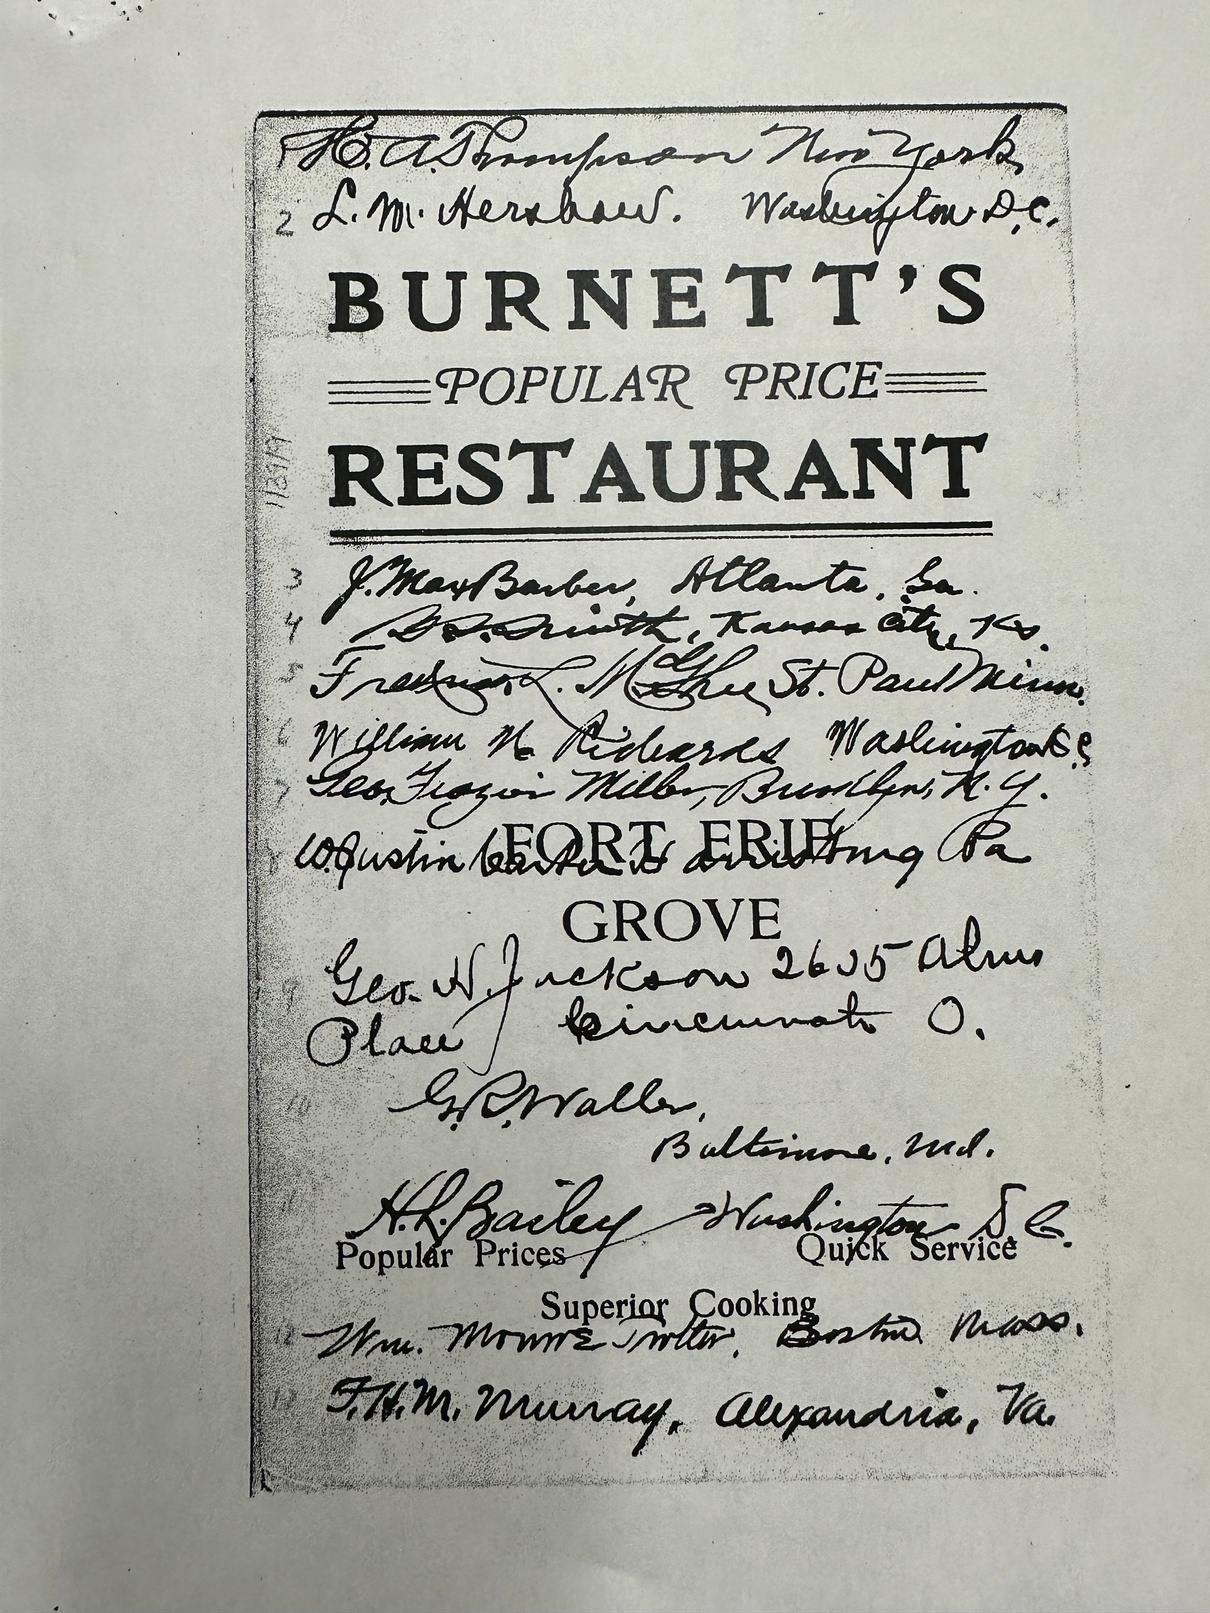 H. A. Thompson New York
2 L. M. Hershaw. Washington D.C.
BURNETT'S
POPULAR PRICE
RESTAURANT
3 J. Max Barber, Atlanta, Ga.
4 Smith, Kansas City, Ks.
5 Fredrick L. McGhee St. Paul Minn.
6 William H. Richards Washington D.C.
7 Geo. Frazier Miller, Brooklyn, N. Y.
FORT ERIE
W. Justin Carter Pa
GROVE
9 Geo. H. Jackson 2605 Alms
Place Cincinnati O.
10 G. R. Waller,
Baltimore, Md.
11 H. L. Bailey Washington D. C.
Popular Prices Quick Service
Superior Cooking
12 Wm. Monroe Trotter, Boston Mass.
13 F. H. M. Murray, Alexandria, Va.